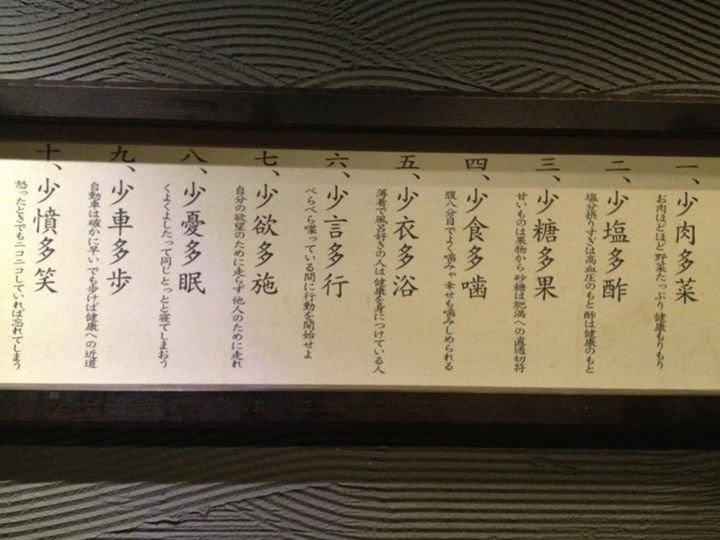 一、少肉多菜
お肉ほどほど 野菜たっぷり 健康もりもり
二、少塩多酢
塩分摂りすぎは高血圧のもと 酢は健康のもと
三、少糖多果
甘いものは果物から 砂糖は肥満への直通切符
四、少食多噛
腹八分目でよく噛みゃ 幸せも噛みしめられる
五、少衣多浴
薄着で風呂好きの人は健康を身につけている人
六、少言多行
べらべら喋っている間に行動を開始せよ
七、少欲多施
自分の欲望のために走らず他人のために走れ
八、少憂多眠
くよくよしたって同じ とっとと寝てしまおう
九、少車多歩
自動車は確かに早い でも歩けば健康への近道
十、少憤多笑
怒ったときでもニコニコしていれば忘れてしまう